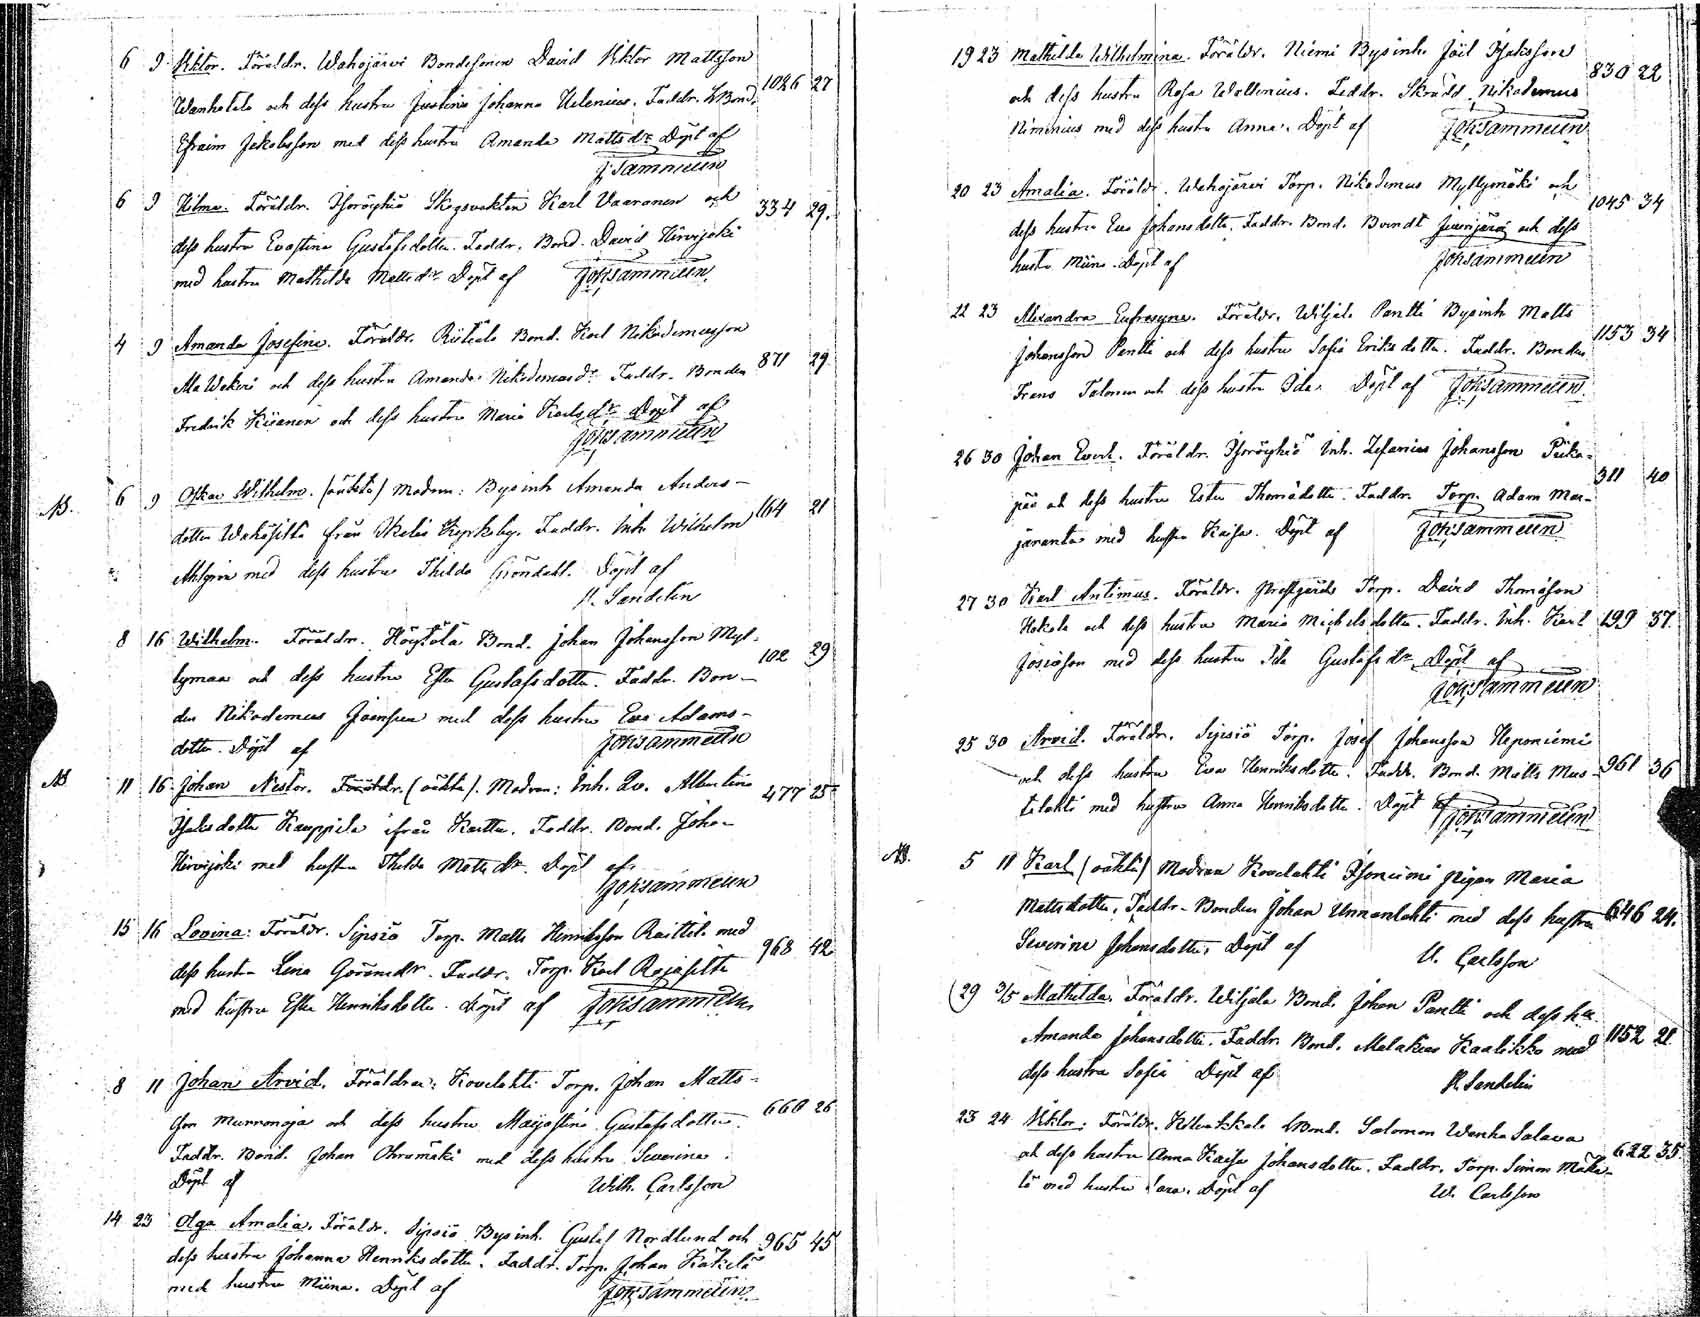 6 9 Viktor. Föräldr. Wahojärvi Bondesonen David Viktor Mattsson
Wanhatalo och dess hustru Justina Johanna Helenius. Faddr. Bond. 1026 27
Efraim Jakobsson med dess hustru Amanda Mattsdr Döpt af
J. Sammelin
6 9 Hilma. Föräldr. Skogsvakten Karl Vaaranen och
dess hustru Evastina Gustafsdotter. Faddr. Bond. David Hirvijoki 334 29.
med hustru Mathilda Mattsdr Döpt af Joh. Sammelin
4 9 Amanda Josefina. Föräldr. Riitiala Bond. Karl Nikodemusson
Ala Wakeri och dess hustru Amanda Nikodemusdr Faddr. Bonden 871 29.
Fredrik Kiianen och dess hustru Maria Karlsdr Döpt af
Joh. Sammelin
NB. 6 9 Oskar Wilhelm. (oäkta) Modren: Bysinh Amanda Anders-
dotter från Kyrkoby. Faddr. Inh. Wilhelm 164 21
Ahlgren med dess hustru Thilda Gröndahl. Döpt af
H. Sandelin
8 16 Wilhelm. Föräldrar. Höytölä Bond. Johan Johansson Myl-
lymaa och dess hustru Ester Gustafsdotter. Faddr. Bon- 102 29
den Nikodemus Joensuu med dess hustru Eva Adams-
dotter. Döpt af Joh. Sammelin
NB 11 16 Johan Nestor. Föräldr. (oäkta). Modren: Inh. Qv. Albertina 477 25
Isaksdotter Kauppila ifrån Karttu. Faddr. Bond. Joha-
Hirvijoki med hustru Thilda Mattsdr. Döpt af
Joh. Sammelin
15 16 Lovina: Föräldr. Sipsiö Torp. Matts Henriksson Raittila med
dess hustru Lina Göransdr. Faddr. Torp. Karl Rajasilta 968 42
med hustru Ester Henriksdotter. Döpt af Joh. Sammelin
8 11 Johan Arvid. Föräldrar: Kovelahti Torp. Johan Matts-
son Murronoja och dess hustru Majastina Gustafsdotter. 660 26
Faddr. Bond. Johan Ohramäki med dess hustru Severina.
Döpt af Wilh. Carlsson
14 23 Olga Amalia. Föräldr. Sipsiö Bysinh. Gustaf Nordlund och 965 45
dess hustru Johanna Henriksdotter. Faddr. Torp. Johan Käkelä
med hustru Miina. Döpt af Joh. Sammelin
19 23 Mathilda Wilhelmina. Föräldr. Niemi Bysinh. Joel Isaksson
och dess hustru Rosa Wallenius. Faddr. Skrädd. Nikodemus 830 22
Niminius med dess hustru Anna. Döpt af Joh. Sammelin
20 23 Amalia. Föräldr. Wahojärvi Torp. Nikodemus Myllymäki och
dess hustru Eva Johansdotter. Faddr. Bond. Berndt Juonijärvi och dess 1045 34
hustru Miina. Döpt af Joh. Sammelin
22 23 Alexandra Eufrosyne. Föräldr. Wiljala Pentti Bysinh Matts
Johansson Pentti och dess hustru Sofia Eriksdotter. Faddr. Bonden 1153 34
Frans Talonen och dess hustru Ida. Döpt af Joh. Sammelin
26 30 Johan Evert. Föräldr. Inh. Zefanias Johansson Piika-
pää och dess hustru Ester Thomasdotter. Faddr. Torp. Adam Mar- 311 40
jaranta med hustru Kaisa. Döpt af Joh. Sammelin
27 30 Karl Antimus. Föräldr. Prestgårds Torp. David Thomasson
Hakala och dess hustru Maria Michelsdotter. Faddr. Inh. Karl 199 37.
Josiasson med dess hustru Ida Gustafsdr Döpt af
Joh. Sammelin
25 30 Arvid. Föräldr. Sipsiö Torp. Josef Johansson Heponiemi
och dess hustru Eva Henriksdotter. Faddr. Bond. Matts Mus- 961 36
talahti med hustru Anna Henriksdotter. Döpt af Joh. Sammelin
NB. 5 11 Karl (oäkta) Modren Kovelahti pigan Maria
Mattsdotter. Faddr. Bonden Johan Unnanlahti med dess hustru 646 24.
Severina Johansdotter. Döpt af W. Carlsson
(29 3/5 Mathilda. Föräldr. Wiljala Bond. Johan Pentti och dess hu.
Amanda Johansdotter. Faddr. Bond. Malakias Kaalikko med 1152 21.
dess hustru Sofia Döpt af H. Sandelin
23 24 Viktor: Föräldr. Bond. Salomon Wanha Salava
och dess hustru Anna Kaisa Johansdotter. Faddr. Torp. Simon Mäke- 622 35.
lä med hustru Sara. Döpt af W. Carlsson